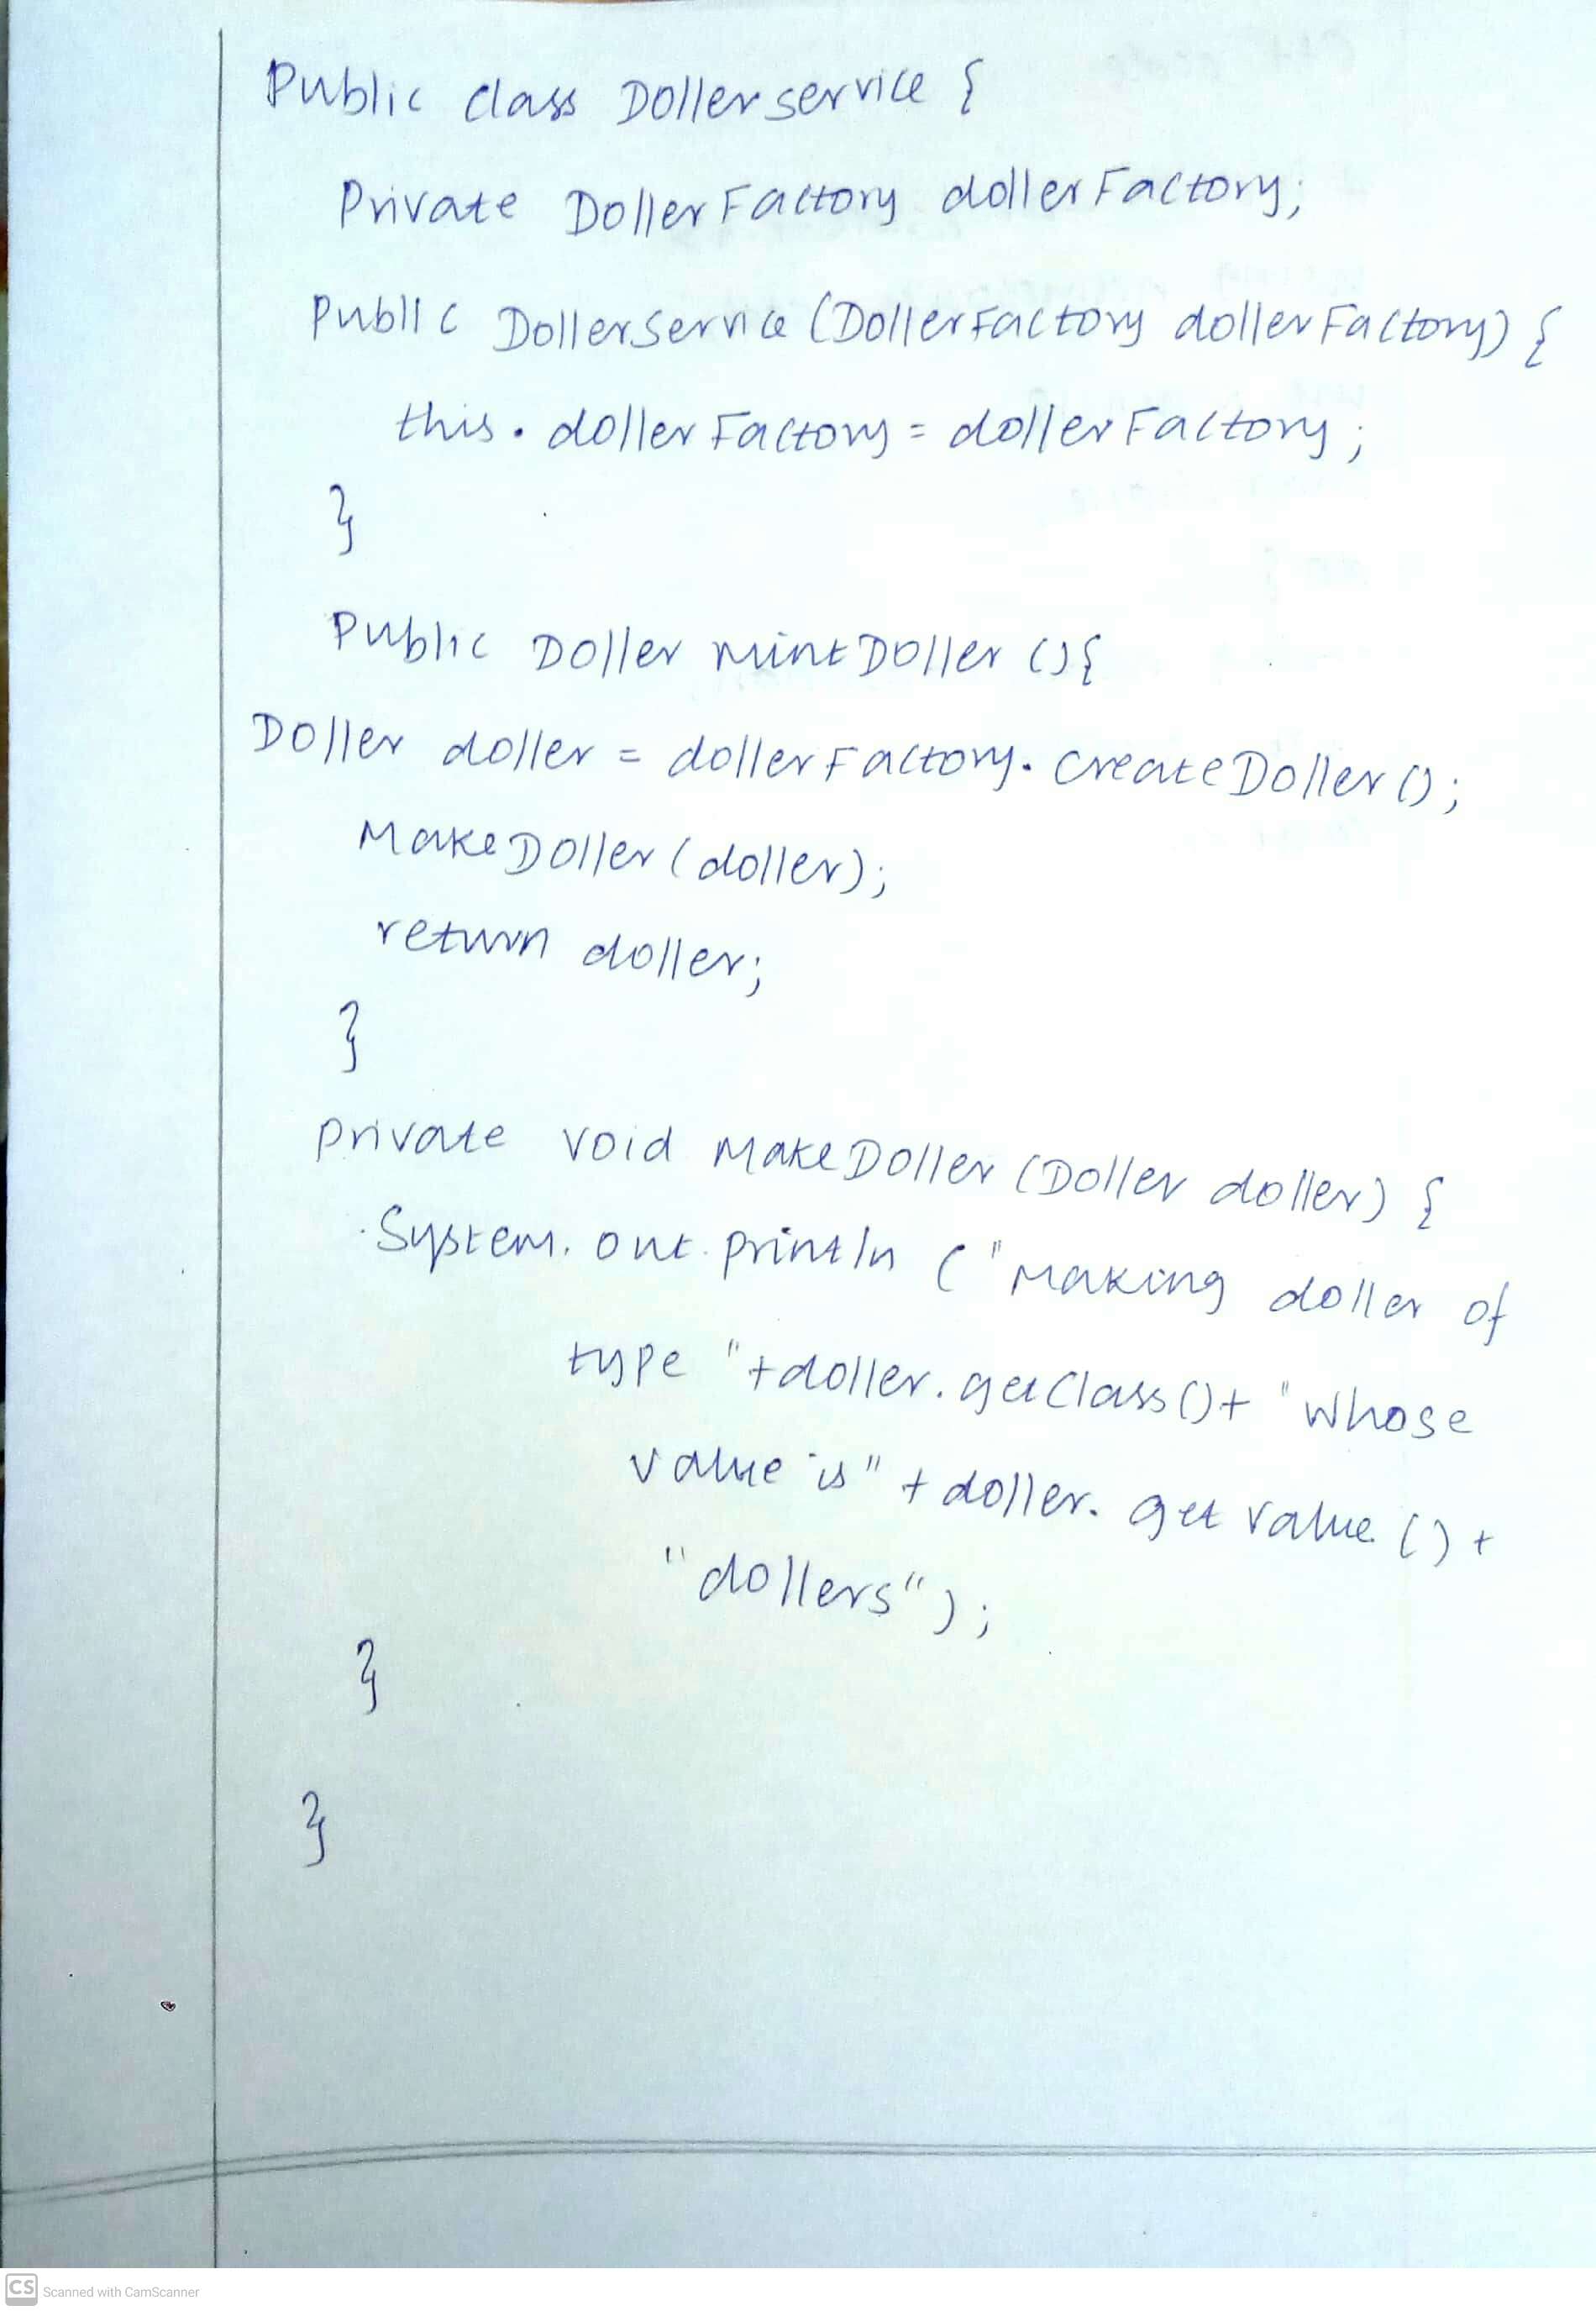 Public class Dollerservice {
Private DollerFactory dollerFactory;
Public Dollerservice (DollerFactory dollerFactory) {
this.dollerFactory = dollerFactory;
}
Public Doller mintDoller () {
Doller doller = dollerFactory.createDoller ();
MakeDoller (doller);
return doller;
}
private void MakeDoller (Doller doller) {
System.out.println ("Making doller of
type "+doller.getClass()+ "whose
value is" + doller.get value () +
"dollers");
}
}
CS Scanned with CamScanner